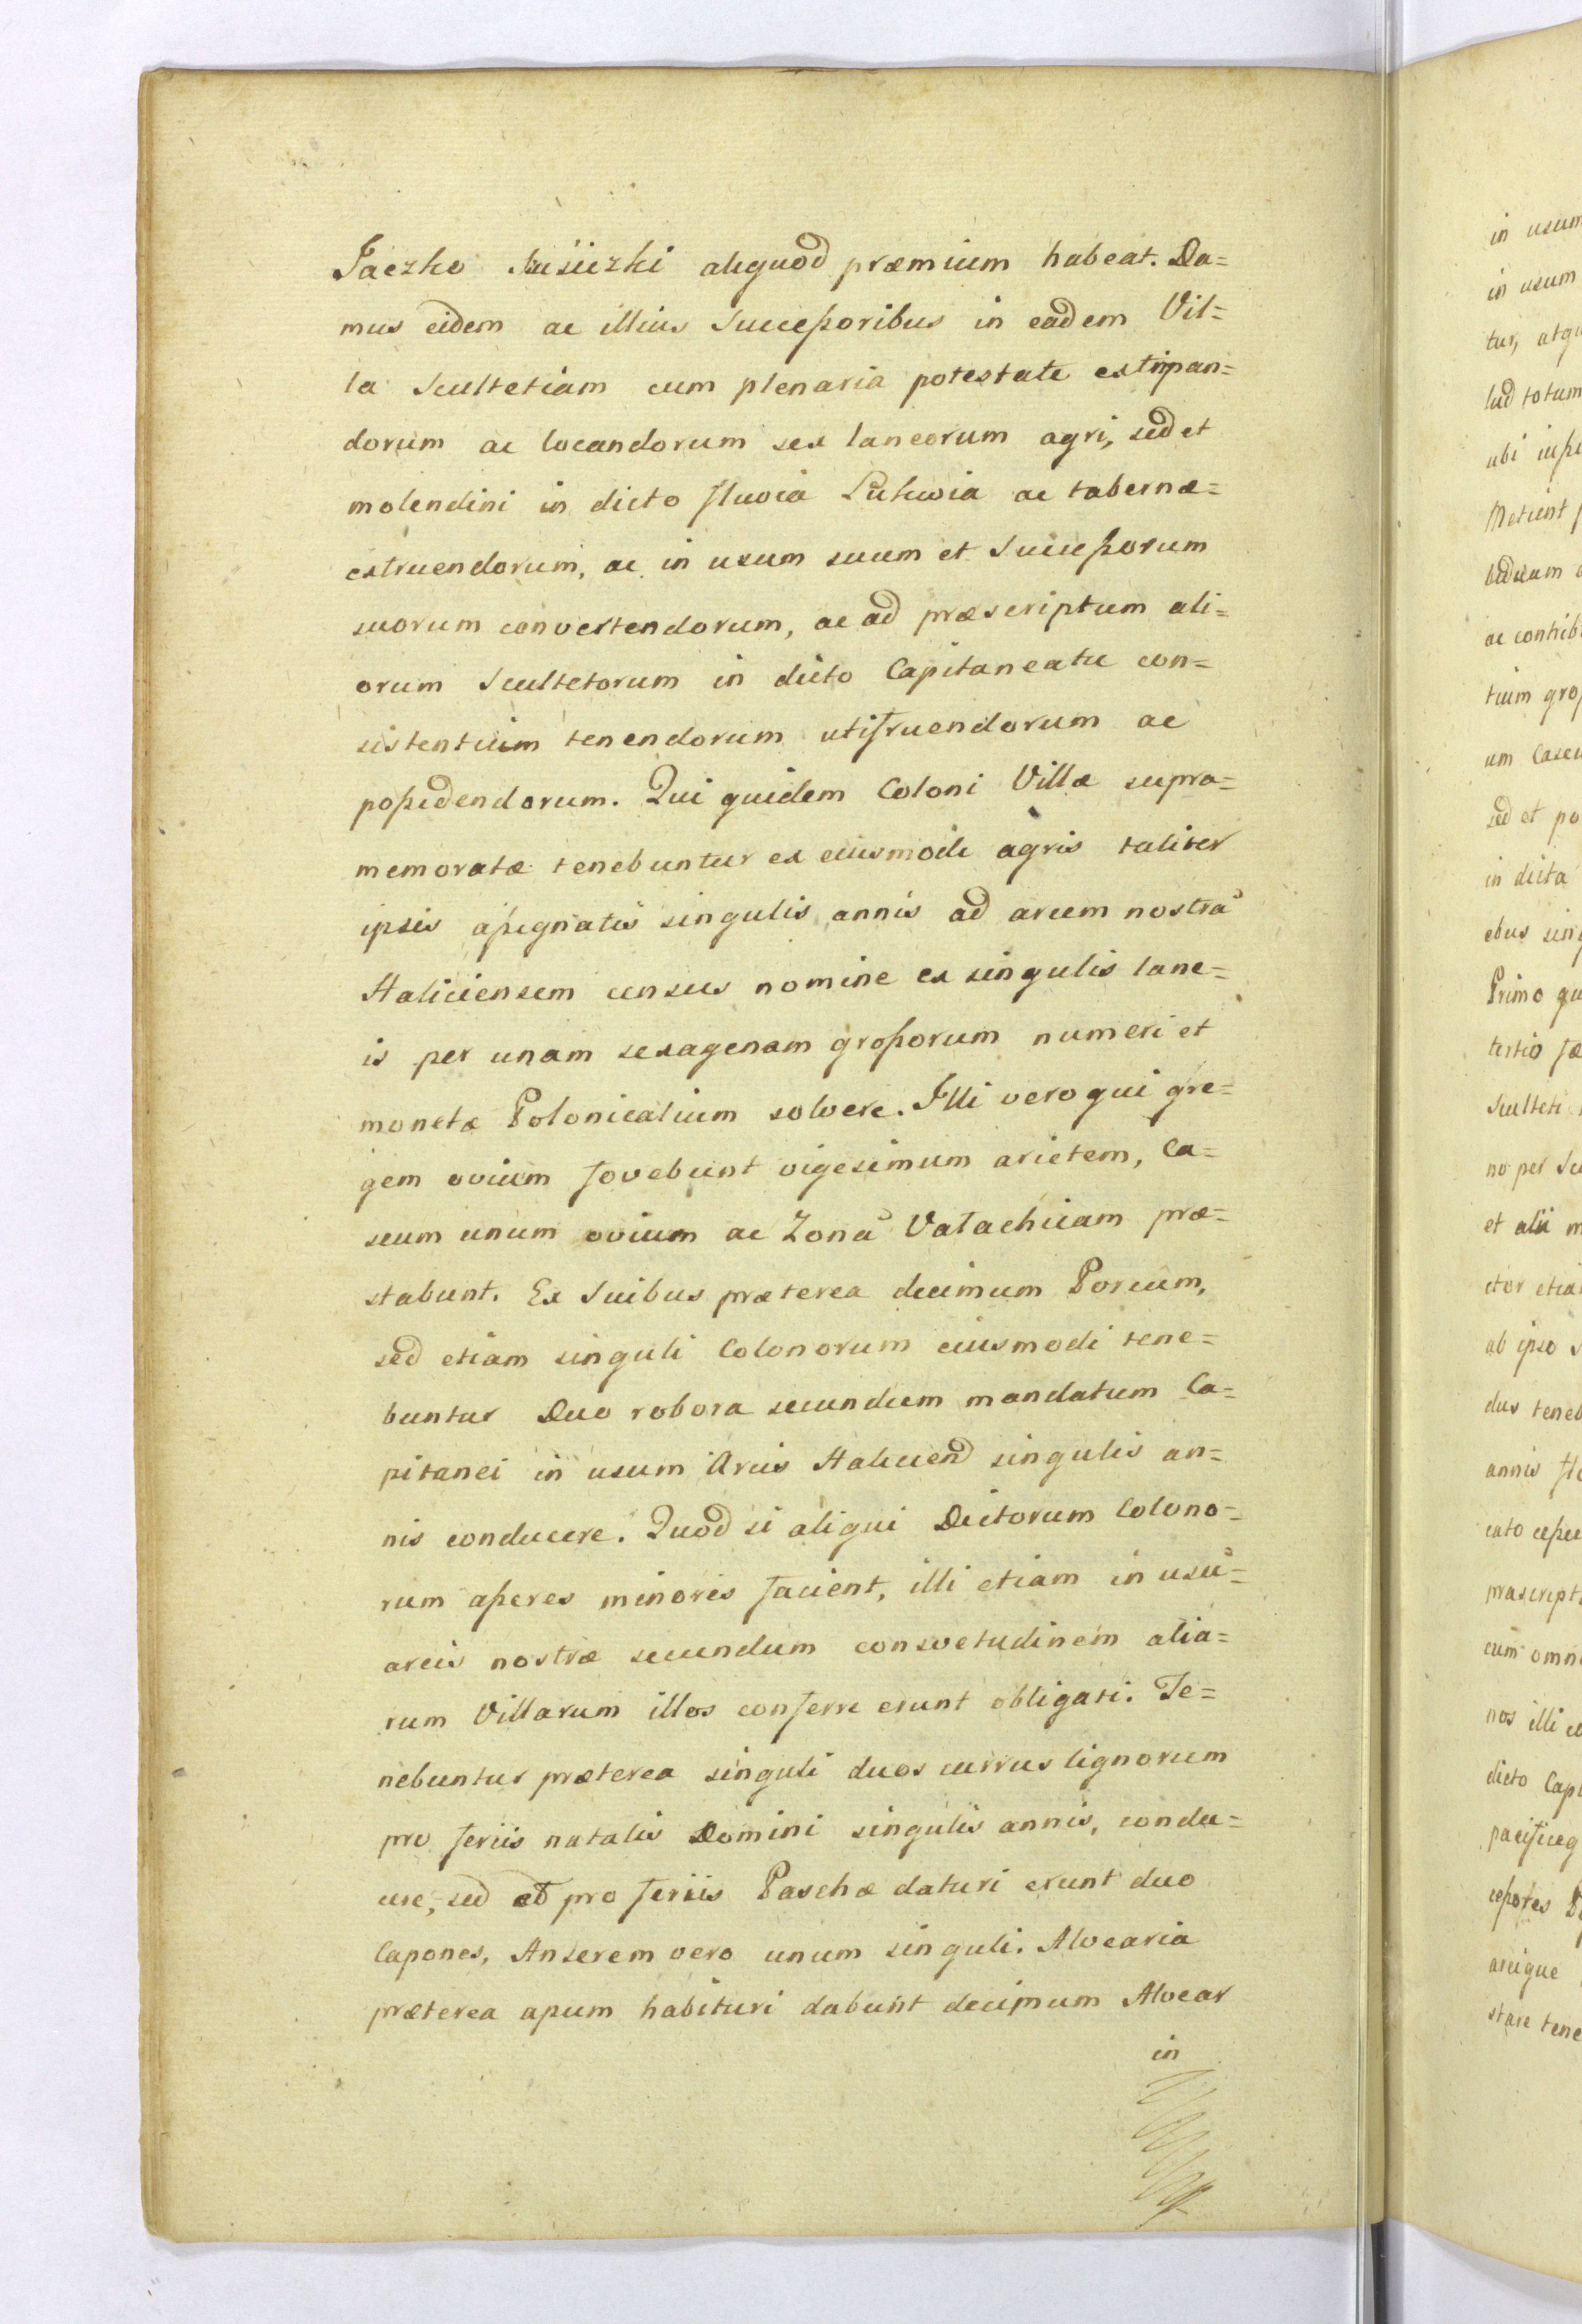 Jaczko Susiczki aliquod præmium habeat. Da=
mus eidem ac illius Successoribus in eadem Vil=
la Scultetiam cum plenaria potestate extirpan=
dorum ac locandorum sex laneorum agri, sed et
molendini in dicto fluvia Lukwia ac tabernæ=
extruendorum, ac in usum suum et Successorum
suorum convertendorum, ac ad præscriptum ali=
orum Scultetorum in dicto Capitaneatu con=
sistentium tenendorum utifruendorum ac
possidendorum. Qui quidem Coloni Villæ supra=
memoratæ tenebuntur ex eiusmodi agris taliter
ipsis assignatis singulis annis ad arcem nostrã
Haliciensem census nomine ex singulis lane=
is per unam sexagenam grossorum numeri et
monetæ Polonicalium solvere. Illi vero qui gre=
gem ovium fovebunt vigesimum arietem, Ca=
seum unum ovium ac Zonã Valachicam præ=
stabunt. Ex Suibus præterea decimum Porcum,
sed etiam singuli Colonorum eiusmodi tene=
buntur Duo robora secundum mandatum Ca=
pitanei in usum Arcis Halicien singulis an=
nis conducere. Quod si aliqui Dictorum Colono=
rum asseres minores facient, illi etiam in usũ=
arcis nostræ secundum consvetudinem alia=
rum Villarum illos conferre erunt obligati. Te=
nebuntur præterea singuli duos currus lignorum
pro feriis natalis Domini singulis annis, condu=
cere, sed et pro feriis Paschæ daturi erunt duo
Capones, Anserem vero unum singuli. Alvearia
præterea apum habituri dabunt decimum Alvear
in
in usum
in usum
tur, atqu
lud totum
ubi
biduum
ac contrib
tium gros
um Caseu
sed et po
in dicta
ebus sing
Primo qu
tertio fæ
Sculteti
no per Scu
et alii m
etor etia
ab ipso s
dus teneb
annis
præscript
cum omni
nos illi co
dicto Capi
arcique
stare tene